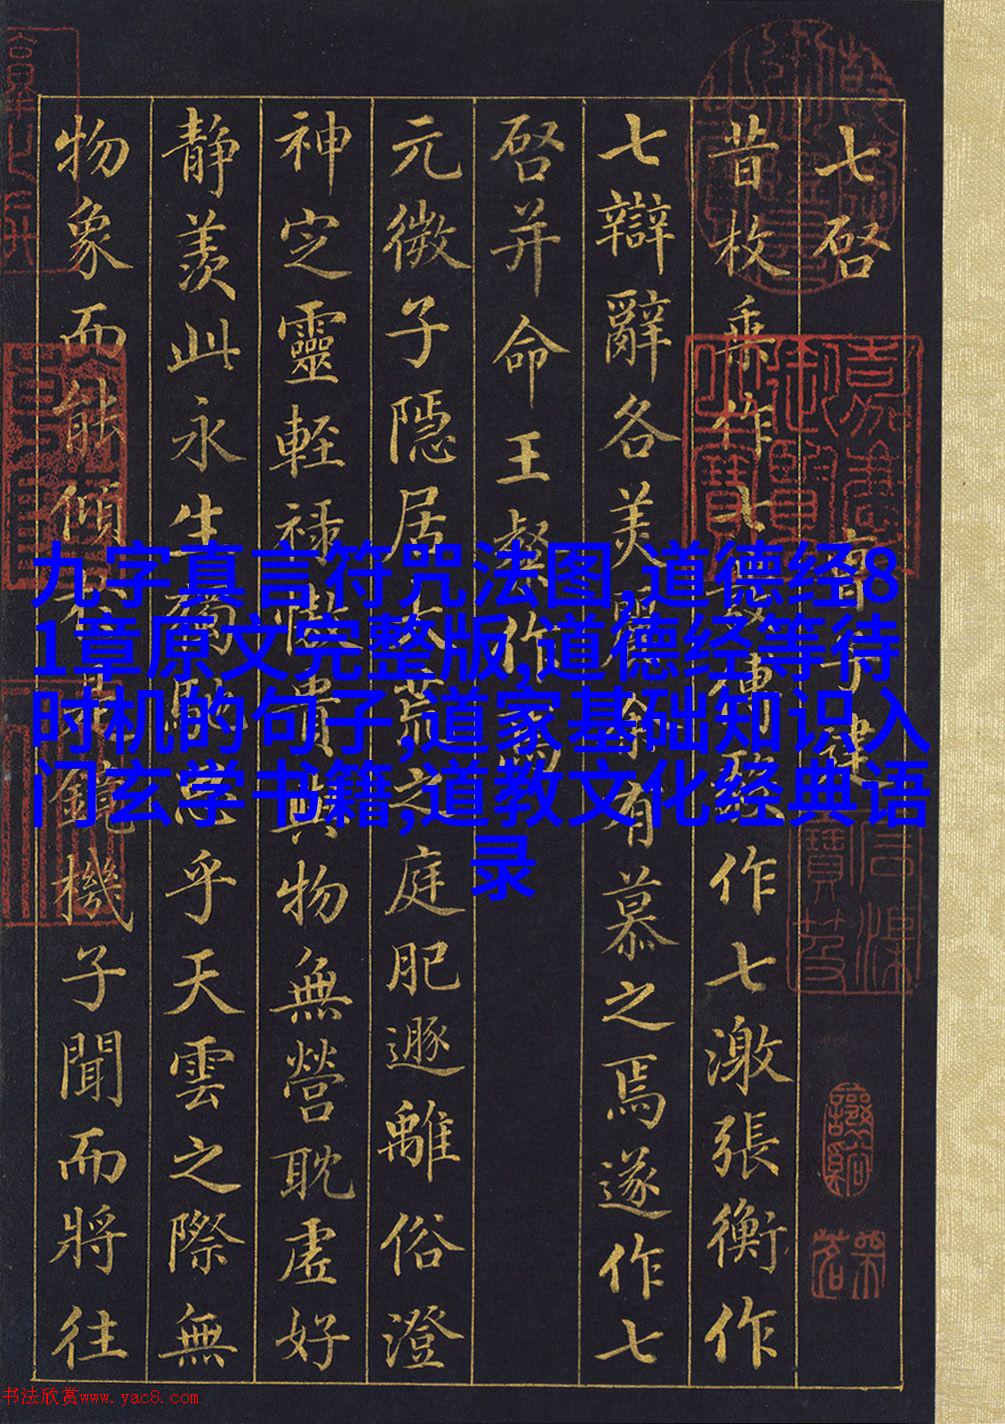 七啓 子建
昔枚乘作七發傅毅作七激張衡作
七辯辭各美麗余有慕之焉遂作七
啓并命王粲作焉
元微子隱居大荒之庭肥遯離俗澄
神定靈輕祿傲貴與物無營耽虛好
靜羨此永生獨馳思乎天雲之際無
物象而能傾於是鏡機子聞而將往
九字真言符咒法图,道德经8
1章原文完整版,道德经等待
时机的句子,道家基础知识入
门玄学书籍,道教文化经典语
录
书法欣赏www.yac8.com